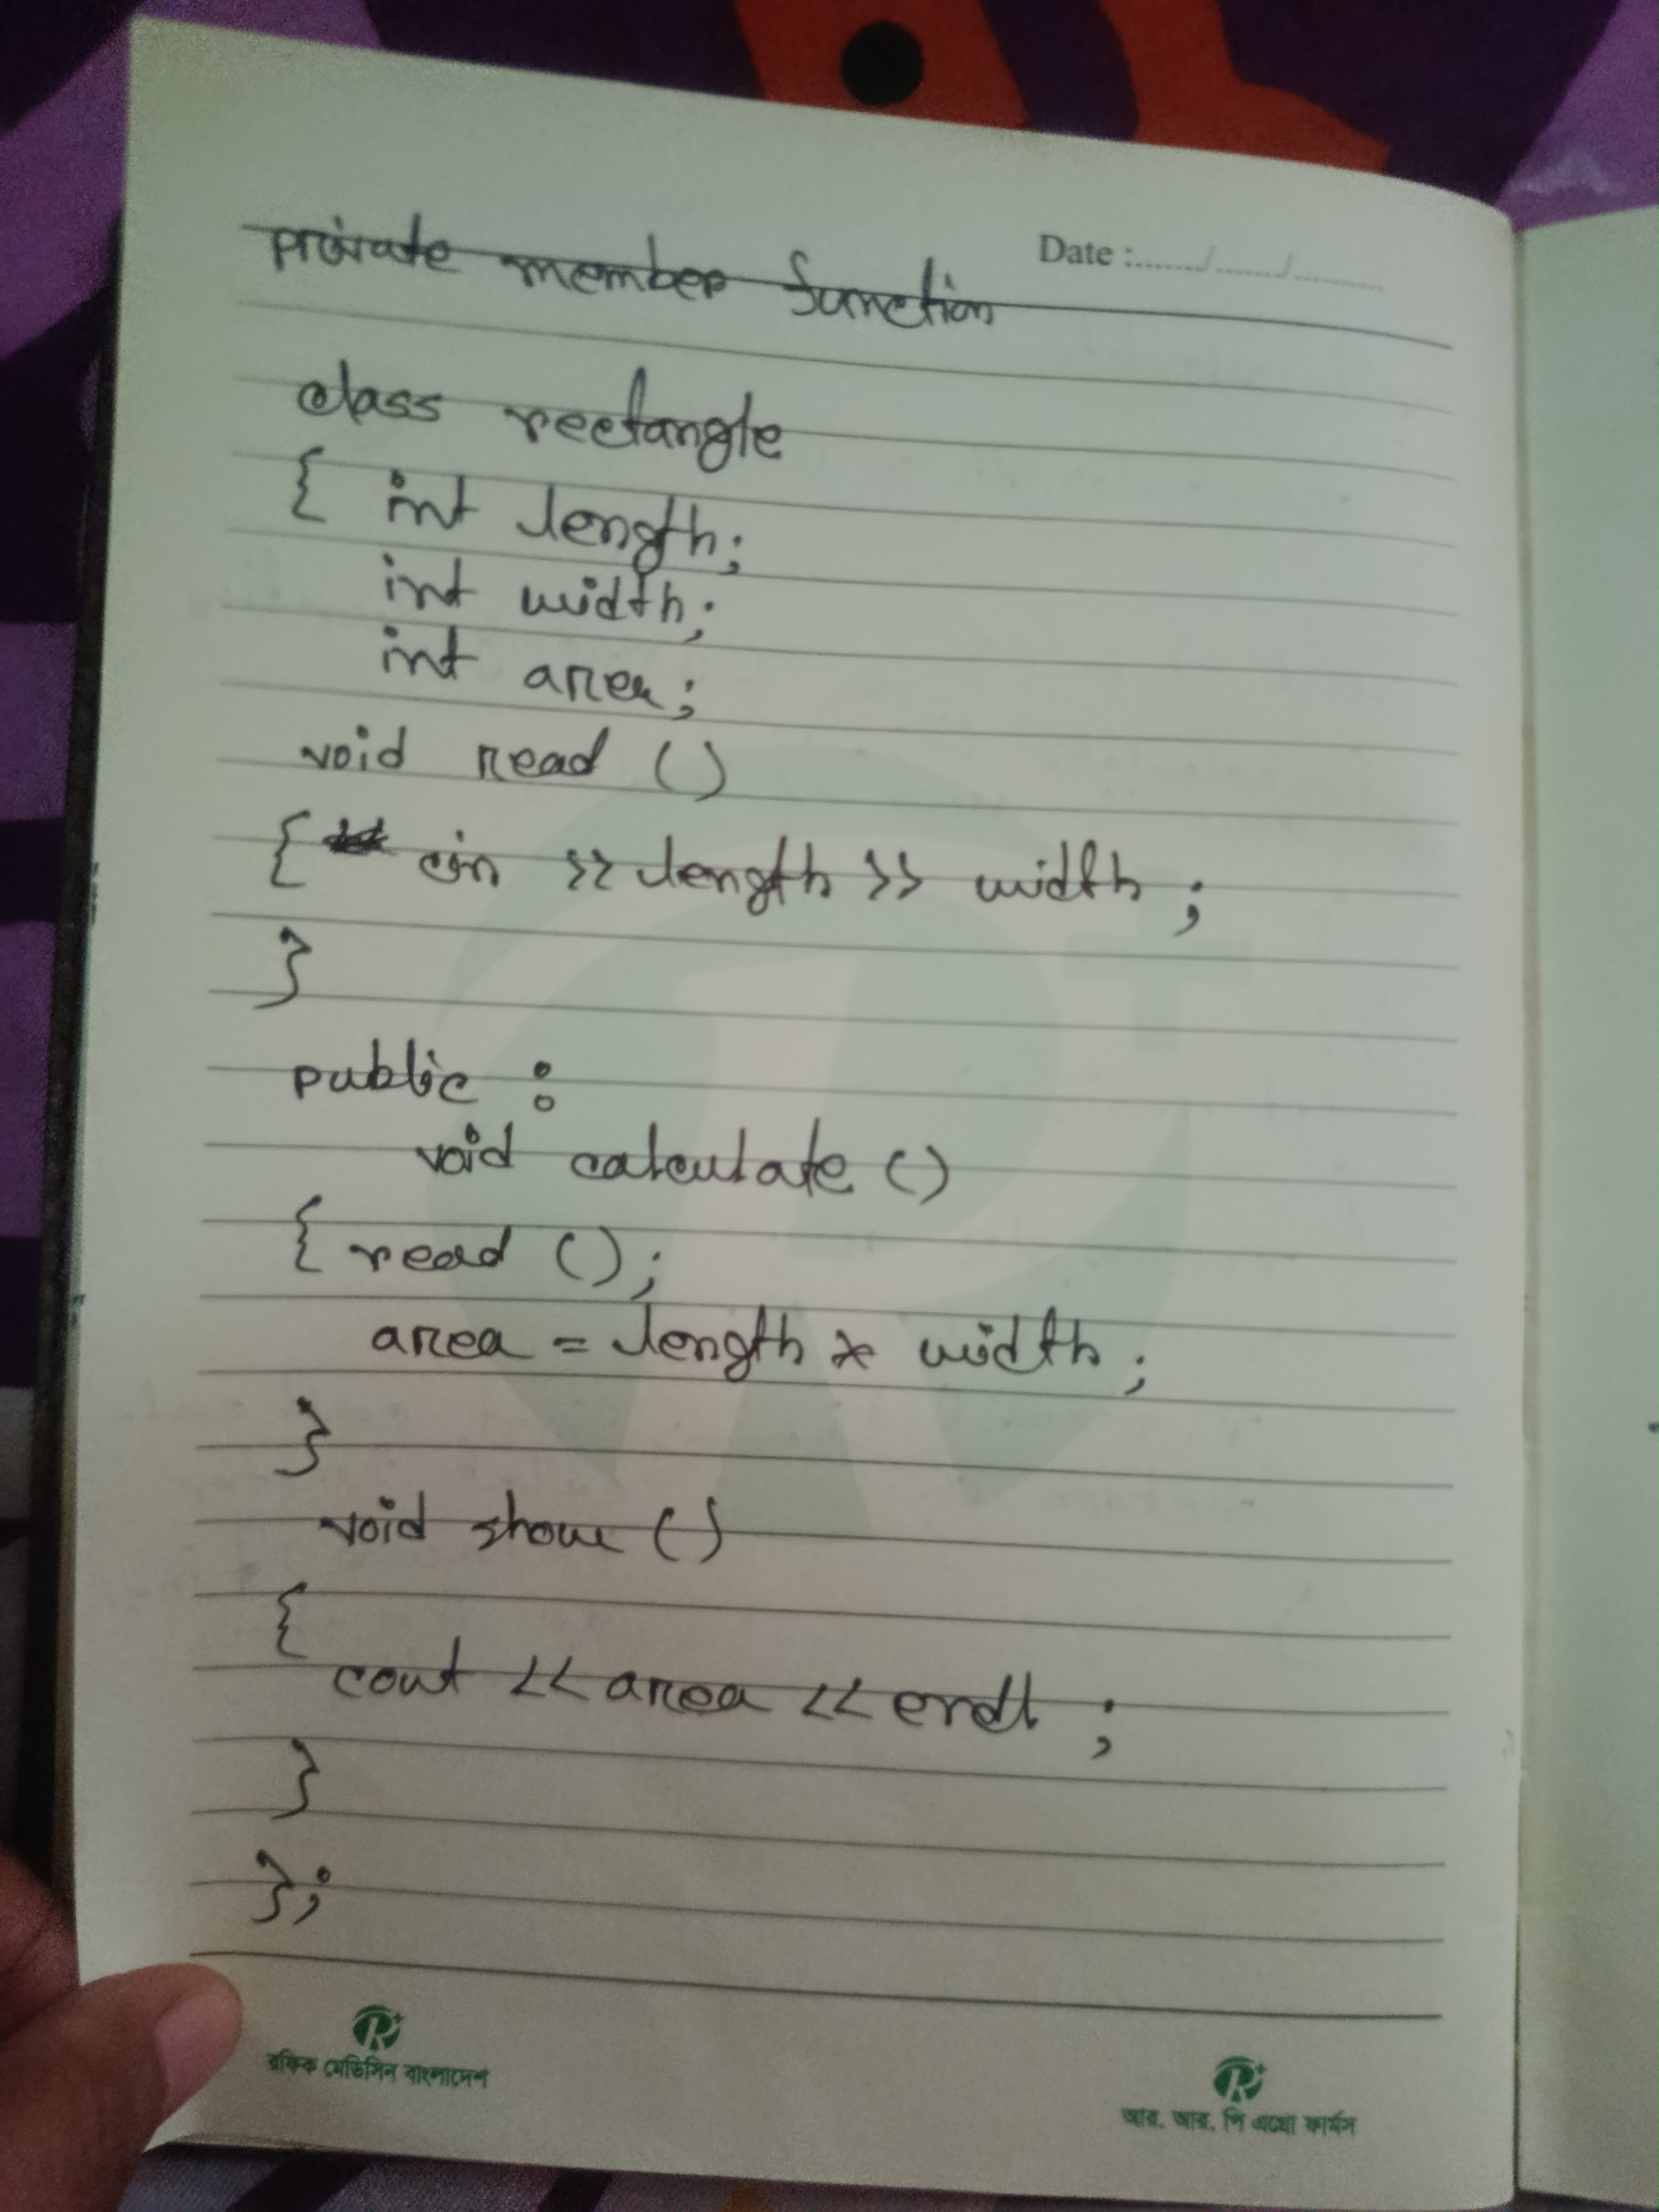 Date :....../....../.........
private member function
class rectangle
{ int length;
int width;
int area;
void read ()
{ cin >> length >> width ;
}
public :
void calculate ()
{ read ();
area = length * width ;
}
void show ()
{
cout << area << endl ;
}
};
R+
রফিক মেডিসিন বাংলাদেশ
R+
আর. আর. পি এগ্রো ফার্মস